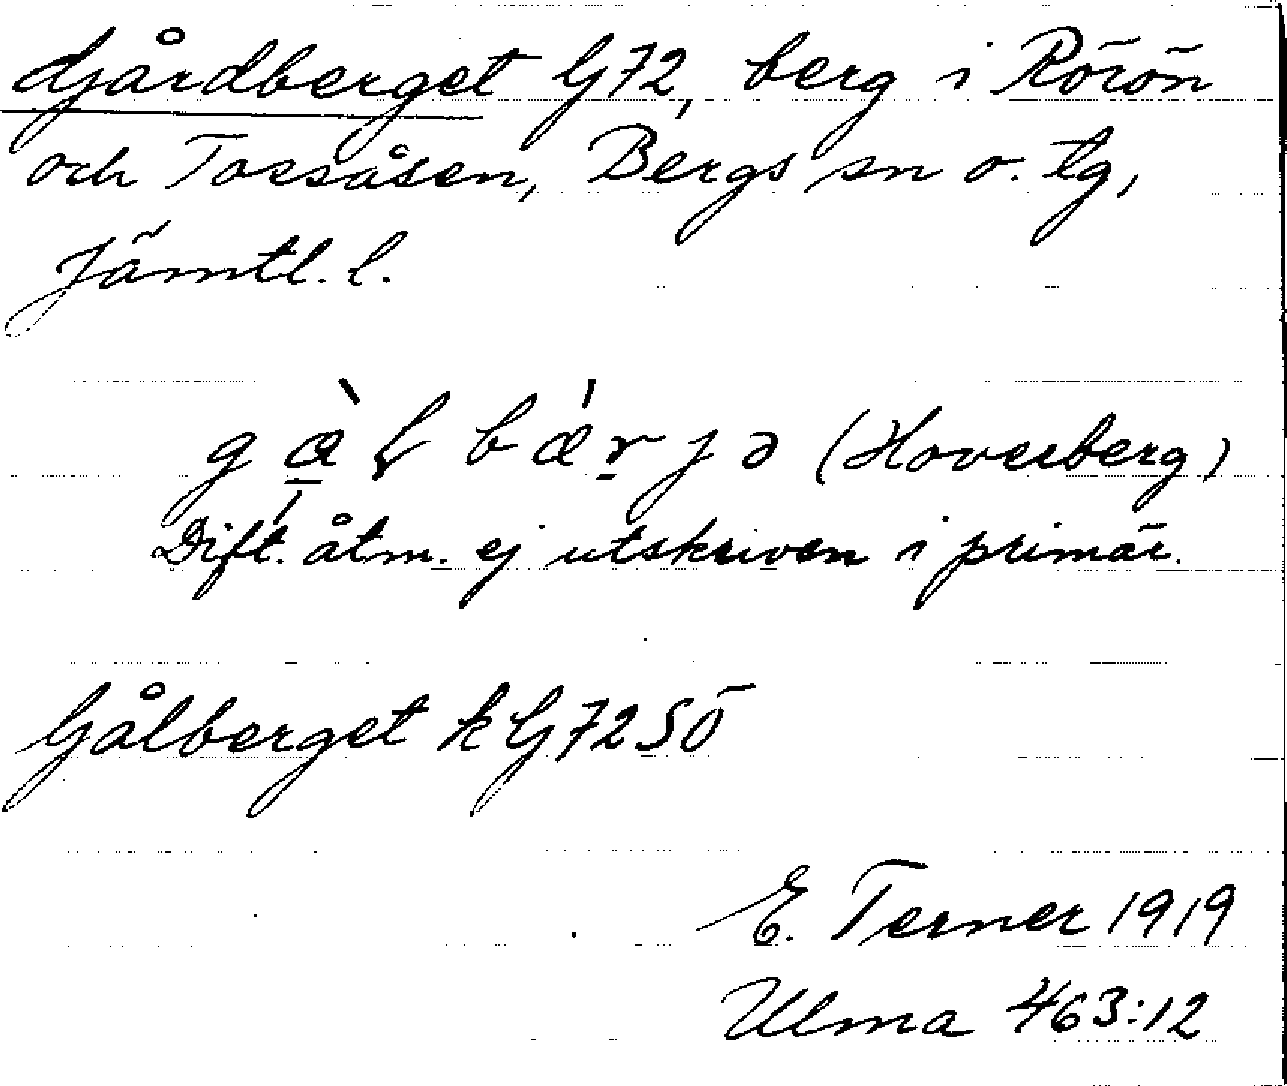 Gjårdberget G72, berg i Rörön
och Tossåsen, Bergs sn o. tg,
Jämtl. l.
(Hoverberg)
Dift. åtm. ej utskriven i primär.
Gålberget k G72SÖ
E. Terner 1919
Ulma 463:12